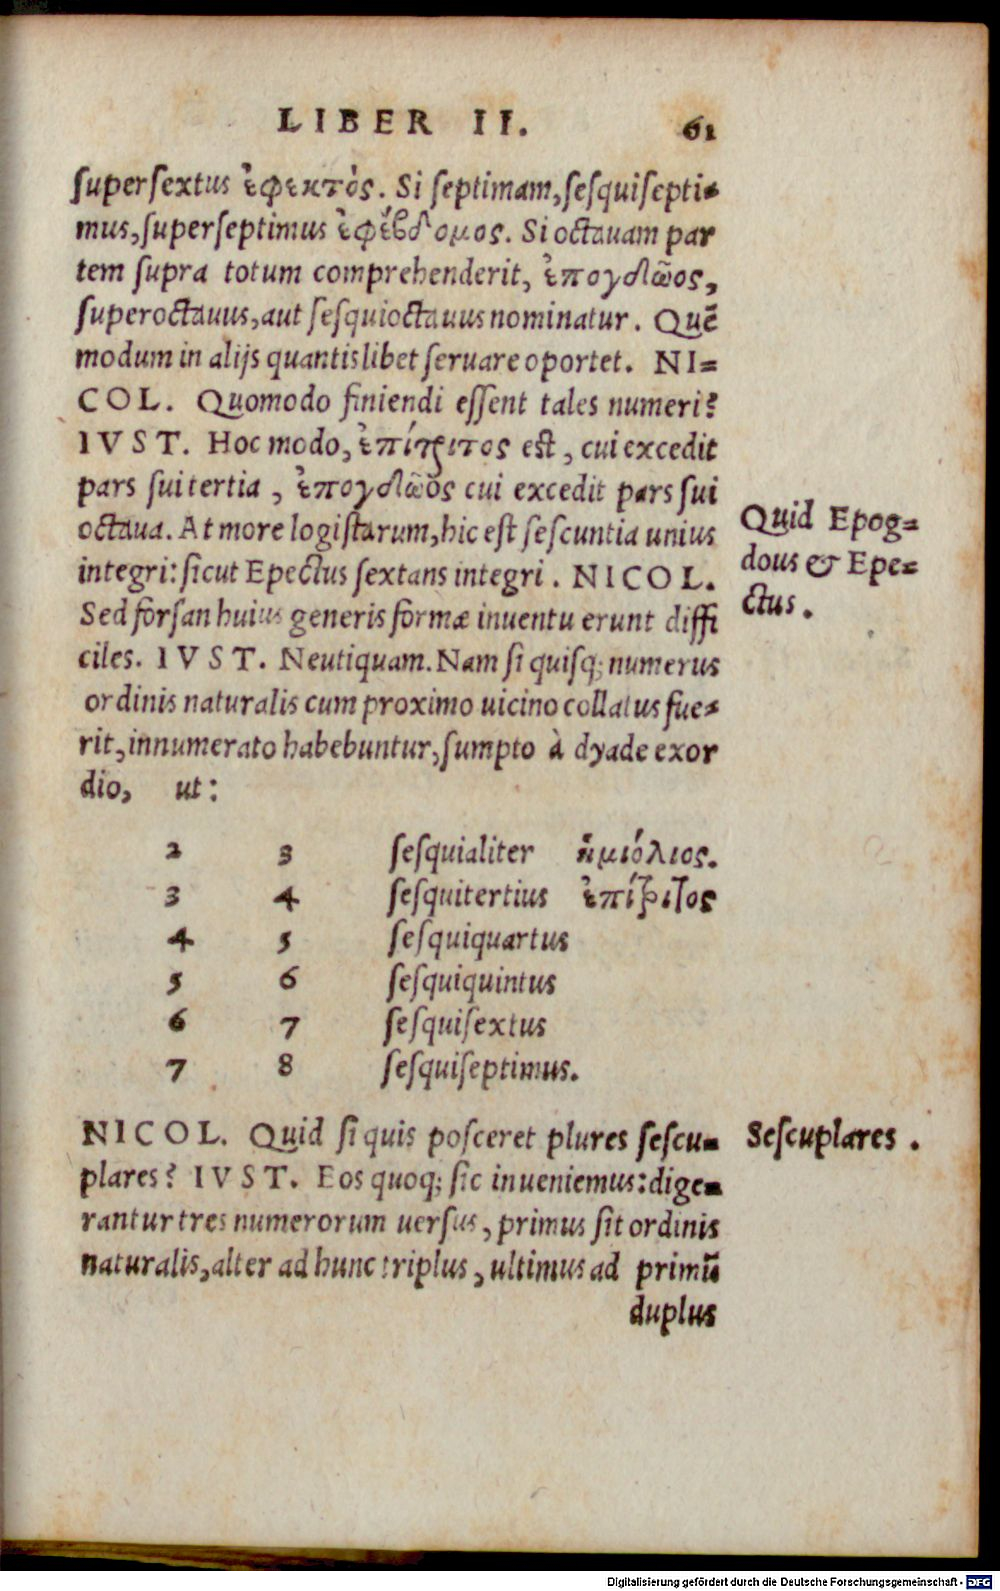 LIBER II. 61
ſuperſextus ἐφεκτὸς. Si ſeptimam, ſeſquiſepti=
mus, ſuperſeptimus ἐφέβδομος. Si octauam par
tem ſupra totum comprehenderit, ἐπογδῶος,
ſuperoctauus, aut ſeſquioctauus nominatur. Quē
modum in alijs quantislibet ſeruare oportet. NI=
COL. Quomodo finiendi eſſent tales numeri?
IVST. Hoc modo, ἐπίτριτος est, cui excedit
pars ſui tertia, ἐπογδῶος cui excedit pars ſui
octaua. At more logistarum, hic est ſeſcuntia unius
integri: ſicut Epectus ſextans integri. NICOL.
Sed forſan huius generis formæ inuentu erunt diffi
ciles. IVST. Neutiquam. Nam ſi quiſq; numerus
ordinis naturalis cum proximo uicino collatus fue=
rit, innumerato habebuntur, ſumpto à dyade exor
dio, ut:
Quid Epog=
dous & Epe=
ctus.
2 3 ſeſquialiter ἡμιόλιος.
3 4 ſeſquitertius ἐπίτριτος
4 5 ſeſquiquartus
5 6 ſeſquiquintus
6 7 ſeſquiſextus
7 8 ſeſquiſeptimus.
NICOL. Quid ſi quis poſceret plures ſeſcu=
plares? IVST. Eos quoq; ſic inueniemus: dige=
rantur tres numerorum uerſus, primus ſit ordinis
naturalis, alter ad hunc triplus, ultimus ad primū
duplus
Seſcuplares.
Digitalisierung gefördert durch die Deutsche Forschungsgemeinschaft - DFG